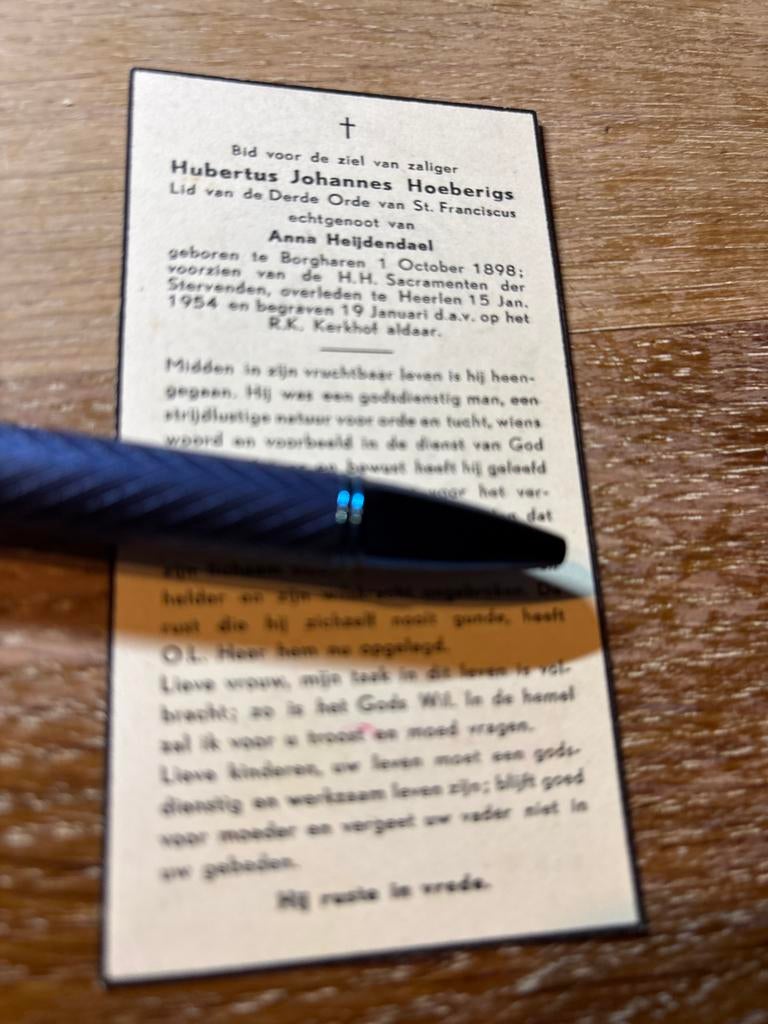 Bid voor de ziel van zaliger
Hubertus Johannes Hoeberigs
Lid van de Derde Orde van St. Franciscus
echtgenoot van
Anna Heijdendael
geboren te Borgharen 1 October 1898;
voorzien van de H.H. Sacramenten der
Stervenden, overleden te Heerlen 15 Jan.
1954 en begraven 19 Januari d.a.v. op het
R.K. Kerkhof aldaar.
Midden in zijn vruchtbaar leven is hij heen-
gegaan. Hij was een godsdienstig man, een
strijdlustige natuur voor orde en tucht, wiens
woord en voorbeeld in de dienst van God
en bewust heeft hij geleefd
voor het ver-
dat
zijn lichaam
helder en zijn ongebroken. De
rust die hij zichzelf nooit gunde, heeft
O.L. Heer hem nu opgelegd.
Lieve vrouw, mijn taak in dit leven is vol-
bracht; zo is het Gods Wil. In de hemel
zal ik voor u troost en moed vragen.
Lieve kinderen, uw leven moet een gods-
dienstig en werkzaam leven zijn; blijft goed
voor moeder en vergeet uw vader niet in
uw gebeden.
Hij ruste in vrede.